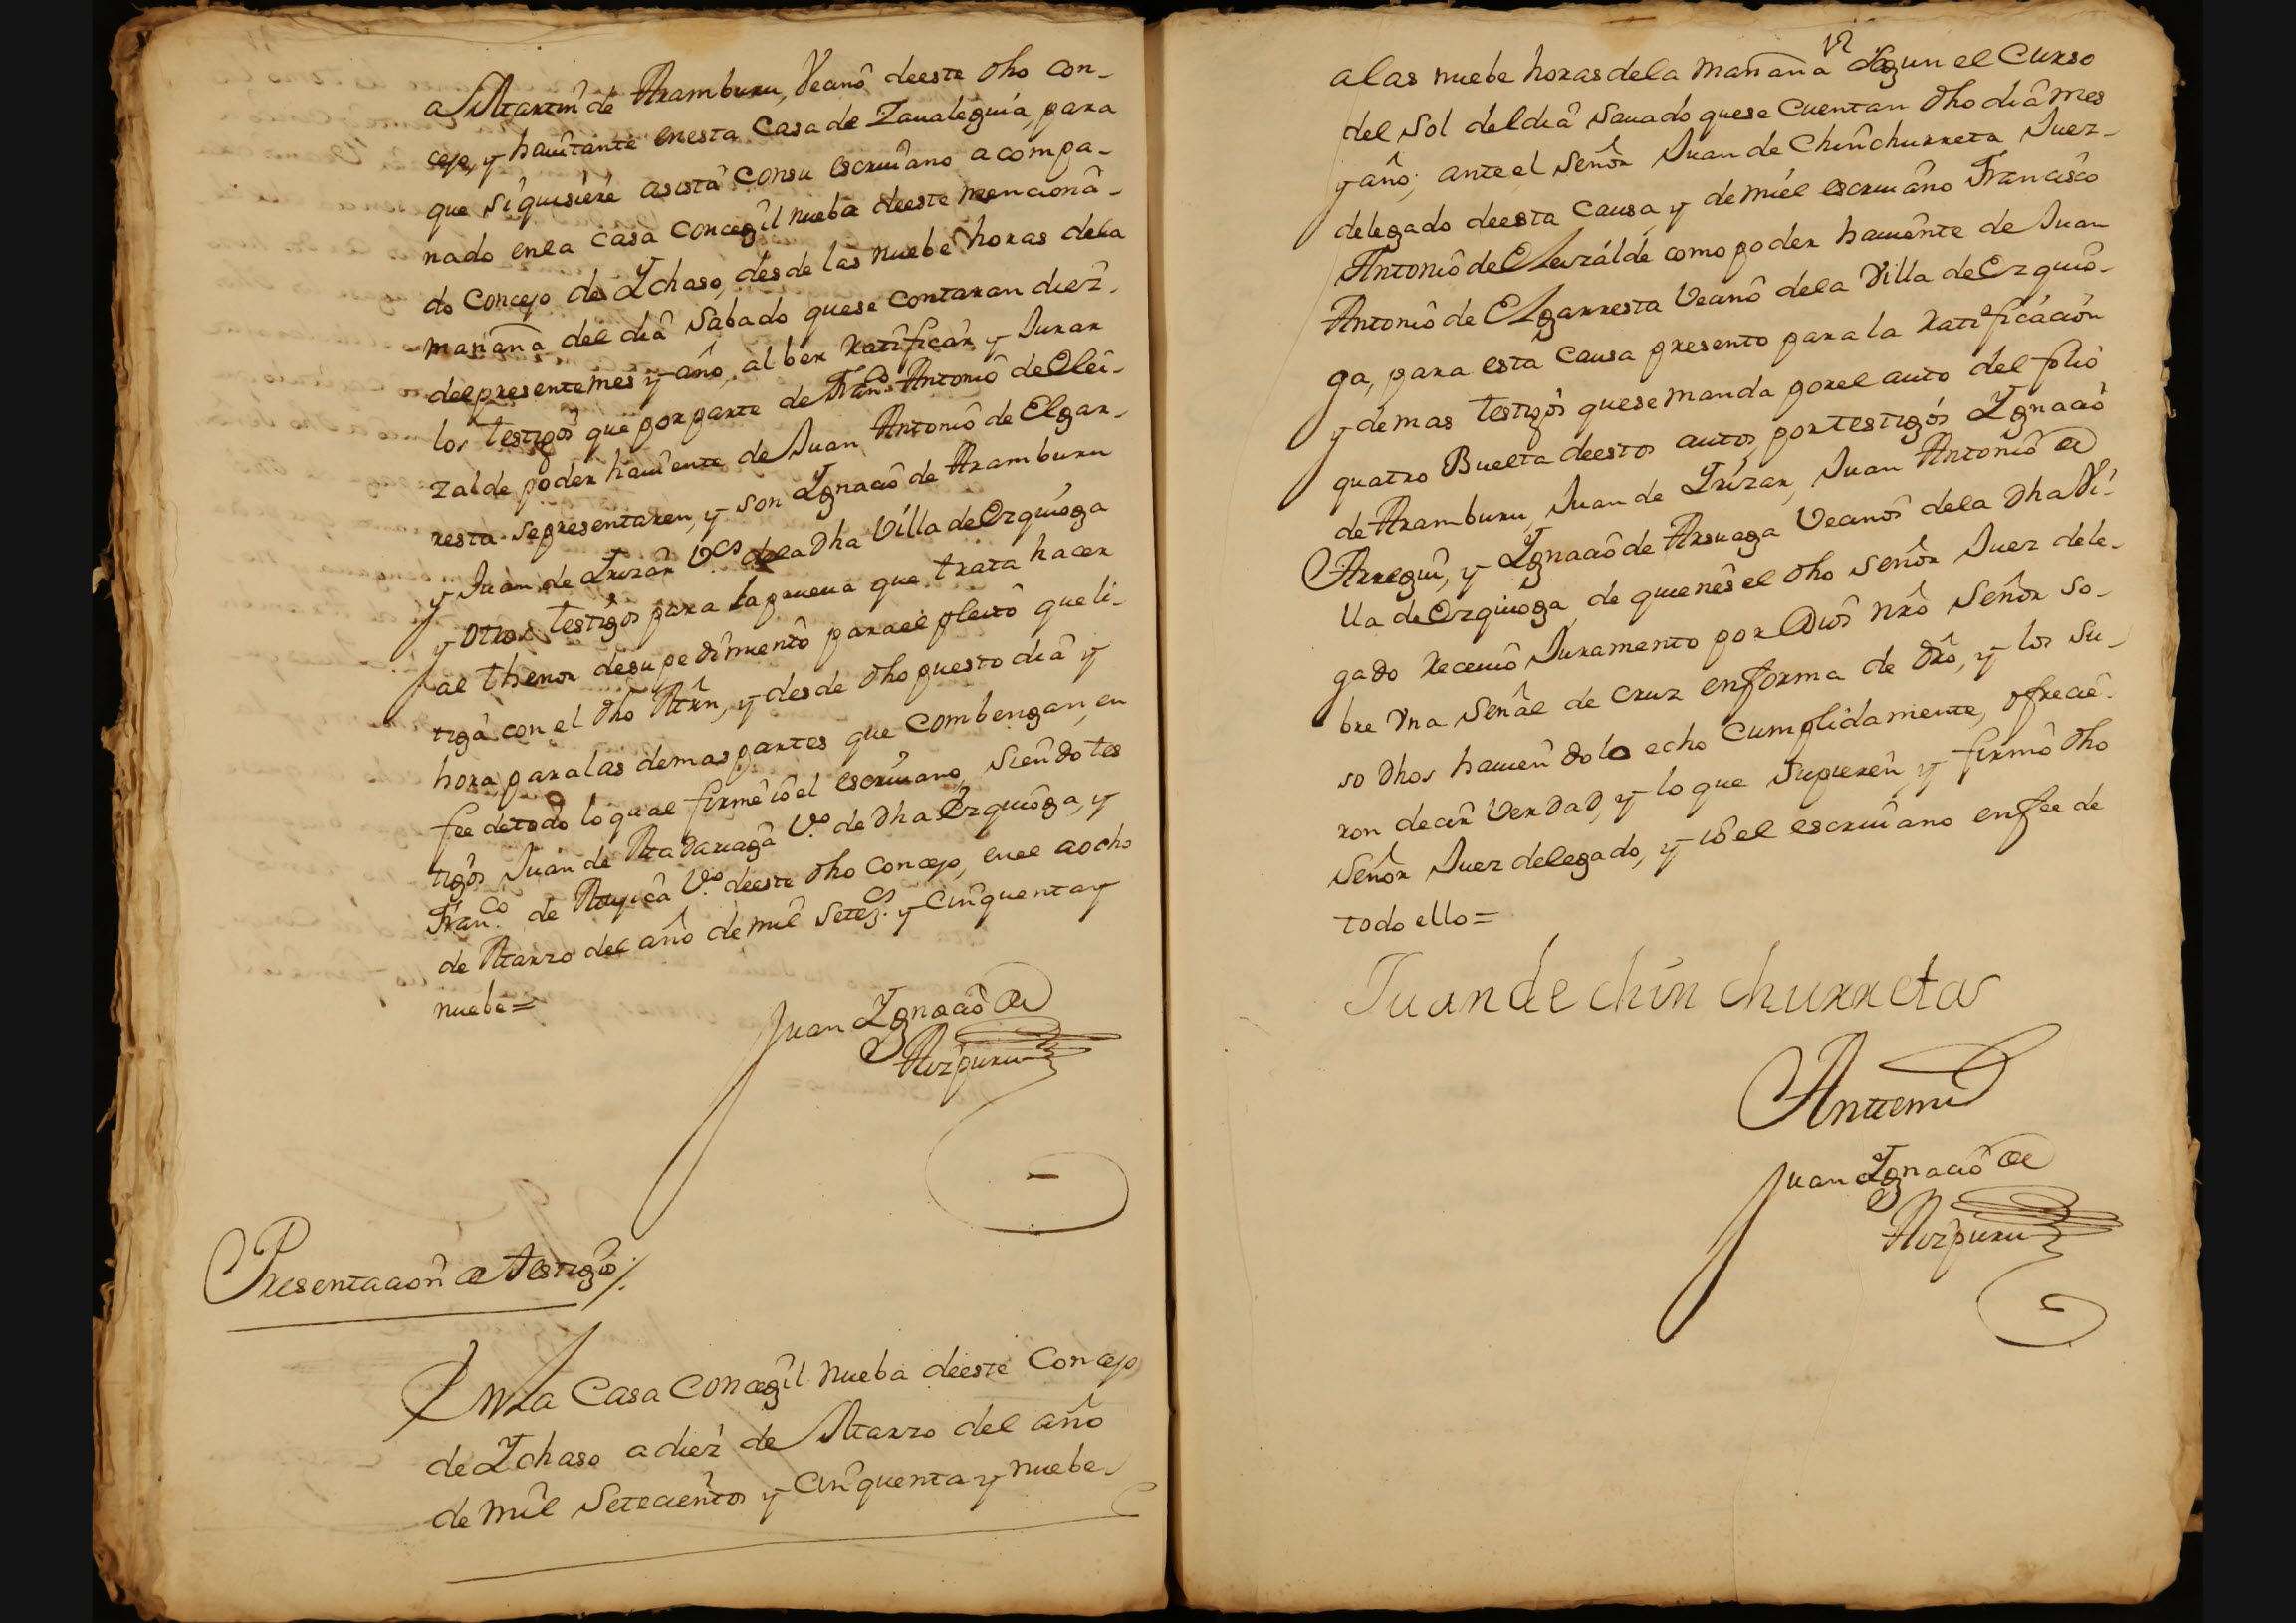 a Martin de Aramburu, Vecino deeste dho con-
cejo, y hauitante enesta Casa de Zaualeguia, para
que si quisiere asista consu escriuano acompa-
nado enla casa concegil nueba deeste menciona-
do Concejo de Ychaso, desde las nuebe horas dela
mañana del dia Sabado quese contaran diez
delpresentemes y año, al ber Ratificar y Jurar
los testigos que por parte de Franco Antonio de Elei-
zalde poder hauiente de Juan Antonio de Elgar-
resta sepresentaren, y son Ygnacio de Aramburu
y Juan de Yrizar Vcos dela Dha Villa de Ezquioga
y otros testigos para la prueua que trata hacer
al thenor desu pedimiento parael pleito que li-
tiga con el dho Mrn, y desde dho puesto dia y
hora, para las demas partes que combengan, en
fee detodo lo qual firme io el escriuano, siendo tes
tigos Juan de Madariaga Vo de Dha Ezquioga, y
Franco de Mugica Vo deeste dho Concejo, enel a ocho
de Marzo del año de mil setezos y Cinquenta y
nuebe=
Juan Ygnacio de
Aizpuru
Presentacion de testigos/.
EnLa Casa Concegil nueba deeste Concejo
de Ychaso a diez de Marzo del año
de mil Setecientos y Cinquenta y nuebe
12
alas nuebe horas dela mañana segun el Curso
del Sol deldia Sauado quese Cuentan dho dia mes
y año; ante el Señor Juan de Chinchurreta Juez
delegado deesta Causa, y demiel escriuano Francisco
Antonio de Eleizalde como poder hauiente de Juan
Antonio de Elgarresta Vecino dela Villa de Ezquio-
ga, para esta Causa presento para la Ratificacion
y demas testigos quese manda por el auto del folio
quatro Buelta deestos autos, por testigos Ygnacio
de Aramburu, Juan de Yrizar, Juan Antonio de
Arregui, y Ygnacio de Arsuaga Vecinos dela Dha Vi-
lla de Ezquioga, de quienes el dho Señor Juez dele-
gado Receuio Juramento por Dios nro Señor so-
bre Vna Señal de Cruz enforma de dro, y los su-
so dhos hauiendolo echo Cumplidamente, ofrecie-
ron decir Verdad, y lo que Supieren, y firmo dho
Señor Juez delegado, y io el escriuano enfee de
todo ello=
Juan de chin churreta
Antemi
Juan Ygnacio de
Aizpuru